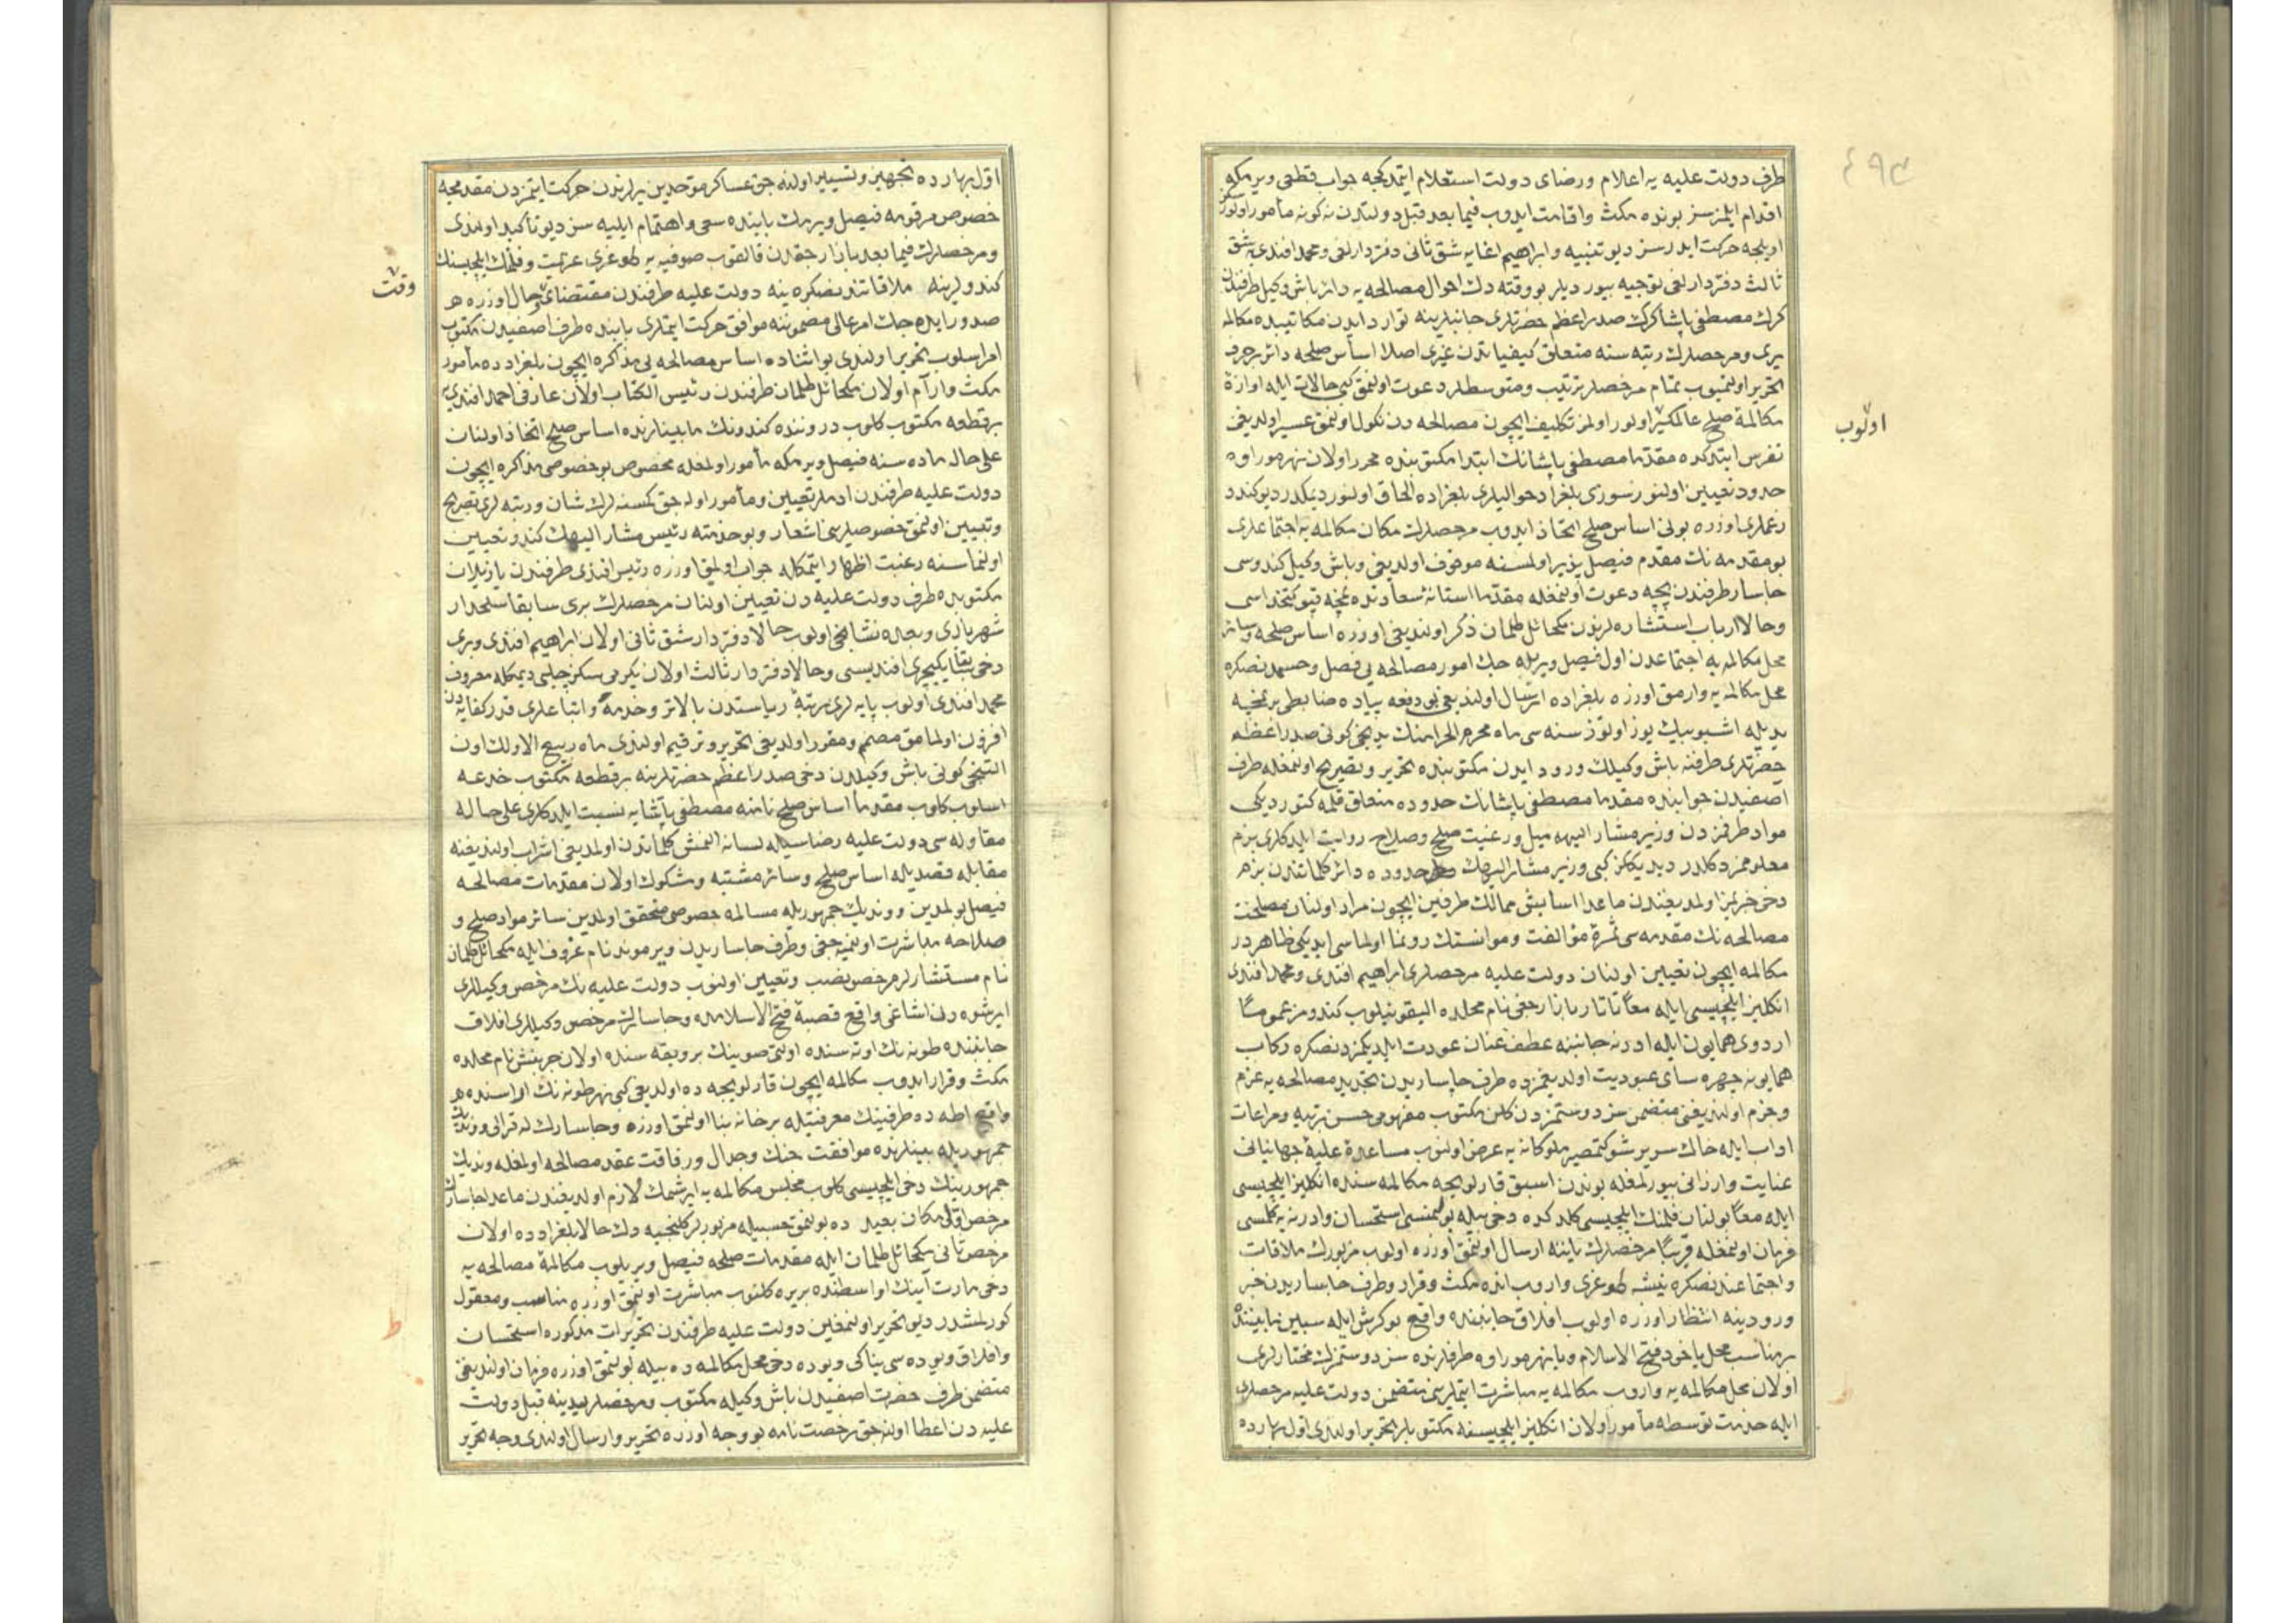 ٤٩٣
طرف دولت علیه یه اعلام و رضای دولت استعلام ایتمدکجه جواب قطعی ویرمکه
اقدام ایلمز سز بونده مکث و اقامت ایدوب فیما بعد قبل دولتدن نه کونه مأمور اولور
اویلجه حرکت ایدرسز دیو تنبیه و ابراهیم اغایه شق ثانی دفتردارلغی و محمد افندی یه شق
ثالث دفتردارلغی توجیه بیوردیلر بو وقته دك احوال مصالحه یه دائر باش وکیل طرفندن
کرك مصطفی پاشا کرك صدر اعظم حضرتلری جانبلرینه توارد ایدن مکاتیبده مکالمه
یری و مرخصلرك رتبه سنه متعلق کیفیاتدن غیری اصلا اساس صلحه دائر بر حرف
تحریر اولنمیوب تمام مرخصلر ترتیب و متوسطلر دعوت اولنمق کبی حالات ایله اوازهٔ
مکالمهٔ صلح عالمکیر اولور اولمز تکلیف ایچون مصالحه دن نکول اولنمق عسیر اولدیغن
اولوب
تفرس ایتدکده مقدما مصطفی پاشانك ابتدا مکتوبنده محرر اولان نهر موراوه
حدود تعیین اولنور سوزی بلغراد حوالیلری بلغراده الحاق اولنور دیمکدر دیو کندو
زعملری اوزره بونی اساس صلح اتخاذ ایدوب مرخصلرك مکان مکالمه یه اجتماعلری
بو مقدمه نك مقدم فیصل پذیر اولمسنه موقوف اولدیغی و باش وکیل کندوسی
چاسار طرفندن بچه دعوت اولنمغله مقدما استانهٔ سعادتده نمچه قپو کتخداسی
و حالا ارباب استشاره لرندن میخائل طلمان ذکر اولندیغی اوزره اساس صلحه و سائر
محل مکالمه یه اجتماعدن اول فیصل ویریله جك امور مصالحه یی فصل و حسمدنصکره
محل مکالمه یه وارمق اوزره بلغراده ارسال اولندیغی بو دفعه پیاده ضابطی بر نمچه
یدیله اشبو بیك یوز اوتوز سنه سی ماه محرم الحرامنك یدنجی کونی صدر اعظم
حضرتلری طرفنه باش وکیلك ورود ایدن مکتوبنده تحریر و تصریح اولنمغله طرف
آصفیدن جوابنده مقدما مصطفی پاشانك حدوده متعلق قلمه کتوردیکی
مواد طرفمزدن وزیر مشار الیهه میل و رغبت صلح و صلاح روایت ایلدکلری بزم
معلوممز دکلدر دیدیککز کبی وزیر مشار الیهك حدوده دائر کلماتندن بزم
دخی خبریمز اولمدیغندن ماعدا سابقی ممالك طرفین ایچون مراد اولنان مصلحت
مصالحه نك مقدمه سی ثمرهٔ مؤالفت و موانستك رونما اولماسی ایدیکی ظاهردر
مکالمه ایچون تعیین اولنان دولت علیه مرخصلری ابراهیم افندی و محمد افندی
انکلیز ایلچیسی ایله معاً تاتار بازارجغی نام محلده الیقونیلوب کندومز عموماً
اردوی همایون ایله ادرنه جانبنه عطف عنان عودت ایلدیکمزدنصکره رکاب
همایونه چهره سای عبودیت اولدیغمزده طرف چاساریدن تجدید مصالحه یه عزم
و جزم اولندیغنی متضمن سز دوستمزدن کلن مکتوب مفهومی حسن رتبه و مراعات
اداب ایله خاك سریر شوکتمصیر ملوکانه یه عرض اولنوب مساعدهٔ علیهٔ جهانبانی
عنایت و ارزانی بیورلمغله بوندن اسبق قارلویجه مکالمه سنده انکلیز ایلچیسی
ایله معاً بولنان فلمنك ایلچیسی کلدکده دخی بیله بولنمسی استحسان و ادرنه یه کلمسی
فرمان اولنمغله قریباً مرخصلرك یاننه ارسال اولنمق اوزره اولوب مزبورك ملاقات
و اجتماعندنصکره نیشه طوغری واروب انده مکث و قرار و طرف چاساریدن خبر
ورودینه انتظار اوزره اولوب افلاق جانبنده واقع بوکرش ایله سبین مابیننده
بر مناسب محل یاخود فتح الاسلام و یا نهر موراوه طرفلرنده سز دوستمزك مختارلری
اولان محل مکالمه یه واروب مکالمه یه مباشرت ایتملرینی متضمن دولت علیه مرخصلری
ایله خدمت توسطه مأمور اولان انکلیز ایلچیسنه مکتوبلر تحریر اولندی اول بهارده
ط
اول بهارده تجهیز و تسییر اولنه جق عساکر موحدین یرلرندن حرکت ایتمزدن مقدمجه
خصوص مرقومه فیصل ویرمك بابنده سعی و اهتمام ایلیه سز دیو تأکید اولندی
و مرخصلرك فیما بعد بازارجقدن قالقوب صوفیه یه طوغری عزیمت و فلمنك ایلچیسنك
کندولرینه ملاقاتندنصکره ینه دولت علیه طرفندن مقتضای حال اوزره هر
وقت
صدور ایده جك امر عالی مضموننه موافق حرکت ایتملری بابنده طرف اصفیدن مکتوب
امر اسلوب تحریر اولندی بو اثناده اساس مصالحه یی مذاکره ایچون بلغرادده مأمور
مکث و آرام اولان میخائل طلمان طرفندن رئیس الکتاب اولان عارفی احمد افندی یه
بر قطعه مکتوب کلوب دروننده کندونك مابینلرنده اساس صلح اتخاذ اولنان
علی حاله ماده سنه فیصل ویرمکه مأمور اولمغله مخصوص بو خصوصی مذاکره ایچون
دولت علیه طرفندن ادملر تعیین و مأمور اوله جق کمسنه لرك شان و رتبه لری تصریح
و تبیین اولنمق خصوصلرینی اشعار و بو خدمته رئیس مشار الیهك کندو تعیین
اولنماسنه رغبت اظهار ایتمکله جواب اولمق اوزره رئیس افندی طرفندن یازیلان
مکتوبده طرف دولت علیه دن تعیین اولنان مرخصلرك بری سابقا سلحدار
شهریاری و بعده نشانجی اولوب حالا دفتردار شق ثانی اولان ابراهیم افندی و بری
دخی سابقا یکیچری افندیسی و حالا دفتردار ثالث اولان یکرمی سکز چلبی دیمکله معروف
محمد افندی اولوب پایه لری رتبهٔ ریاستدن بالاتر و خدمه و اتباعلری قدر کفایه دن
افزون اولمامق مصمم و مقرر اولدیغی تحریر و ترقیم اولندی ماه ربیع الاولك اون
التنجی کونی باش وکیلدن دخی صدر اعظم حضرتلرینه بر قطعه مکتوب خدعه
اسلوب کلوب مقدما اساس صلح نامنه مصطفی پاشایه نسبت ایلدکلری علی حاله
مقاوله سی دولت علیه رضاسیله لسانه النمش کلماتدن اولمدیغی اشراب اولندیغنه
مقابله قصدیله اساس صلح و سائر مشتبه و مشکوك اولان مقدمات مصالحه
فیصل بولمدین و وندیك جمهوریله مسالمه خصوصی متحقق اولمدین سائر مواد صلح و
صلاحه مباشرت اولنمیه جغی و طرف چاساریدن ویرموند نام غروف ایله میخائل طلمان
نام مستشارلر مرخص نصب و تعیین اولنوب دولت علیه نك مرخص وکیللری
ایرشوه دن اشاغی واقع قصبهٔ فتح الاسلامده و چاسارك مرخص وکیللری افلاق
جانبنده طونه نك اوته سنده اولتی صوینك بروبقه سنده اولان چرنتش نام محلده
مکث و قرار ایدوب مکالمه ایچون قارلویجه ده اولدیغی کبی نهر طونه نك اواسنده
واقع اطه ده طرفینك معرفتیله بر خانه بنا اولنمق اوزره و چاسارك له قرالی و وندیك
جمهوریله بینلرنده موافقت جنك و جدال و رفاقت عقد مصالحه اولمغله وندیك
جمهورینك دخی ایلچیسی کلوب مجلس مکالمه یه ایرشمك لازم اولدیغندن ماعدا چاسارك
مرخص اولی مکان بعید ده بولنمق حسبیله مزبورلر کلنجیه دك حالا بلغرادده اولان
مرخص ثانی میخائل طلمان ایله مقدمات صلحه فیصل ویریلوب مکالمهٔ مصالحه یه
دخی مارت آینك اواسطنده بریره کلنوب مباشرت اولنمق اوزره مناسب و معقول
کورلمشدر دیو تحریر اولنمغین دولت علیه طرفندن تحریرات مذکوره استحسان
ط
و افلاق ویوده سی یناکی ویوده دخی محل مکالمه ده بیله بولنمق اوزره فرمان اولندیغی
متضمن طرف حضرت اصفیدن باش وکیله مکتوب و مرخصلر یدینه قبل دولت
علیه دن اعطا اولنه جق رخصت نامه بو وجه اوزره تحریر و ارسال اولندی وجه تحریر